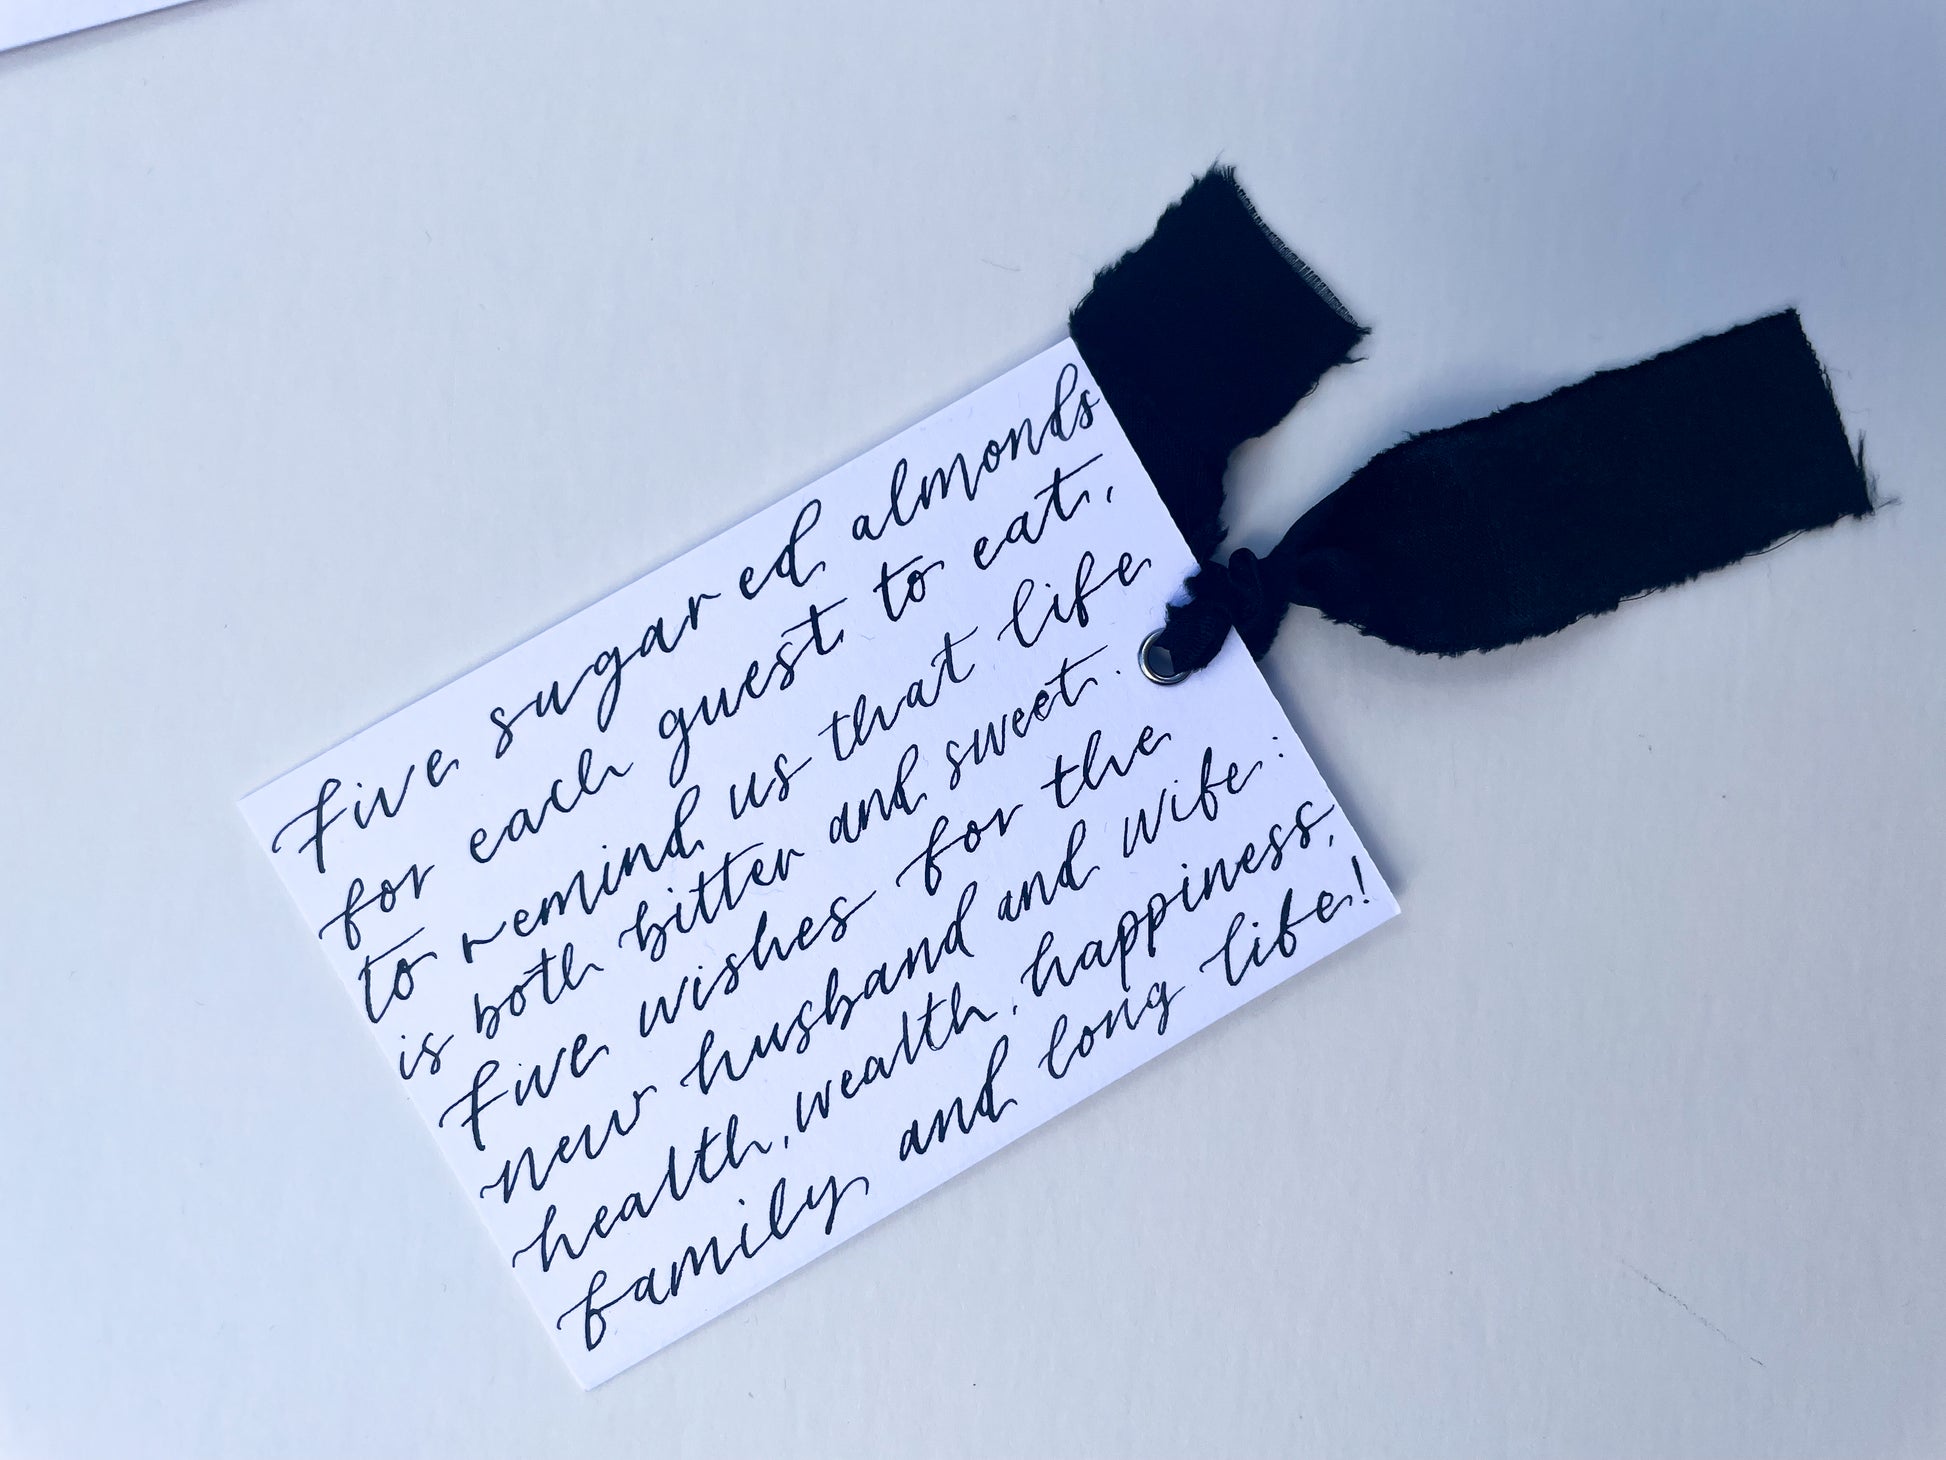 Five sugared almonds
for each guest to eat,
to remind us that life
is both bitter and sweet.
Five wishes for the
new husband and wife:
health, wealth, happiness,
family and long life!